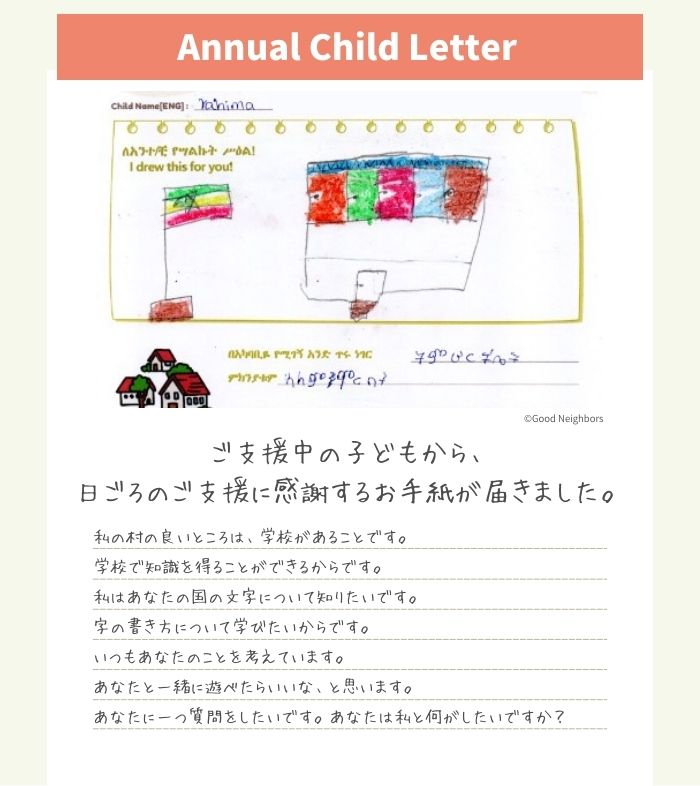 Annual Child Letter
Child Name[ENG]: Rahima
ለእንተ/ቺ የሣልኩት ሥዕል!
I drew this for you!
በአካባቢዬ የሚገኝ አንድ ጥሩ ነገር
ምክንያቱም
©Good Neighbors
ご支援中の子どもから、
日ごろのご支援に感謝するお手紙が届きました。
私の村の良いところは、学校があることです。
学校で知識を得ることができるからです。
私はあなたの国の文字について知りたいです。
字の書き方について学びたいからです。
いつもあなたのことを考えています。
あなたと一緒に遊べたらいいな、と思います。
あなたに一つ質問をしたいです。あなたは私と何がしたいですか?